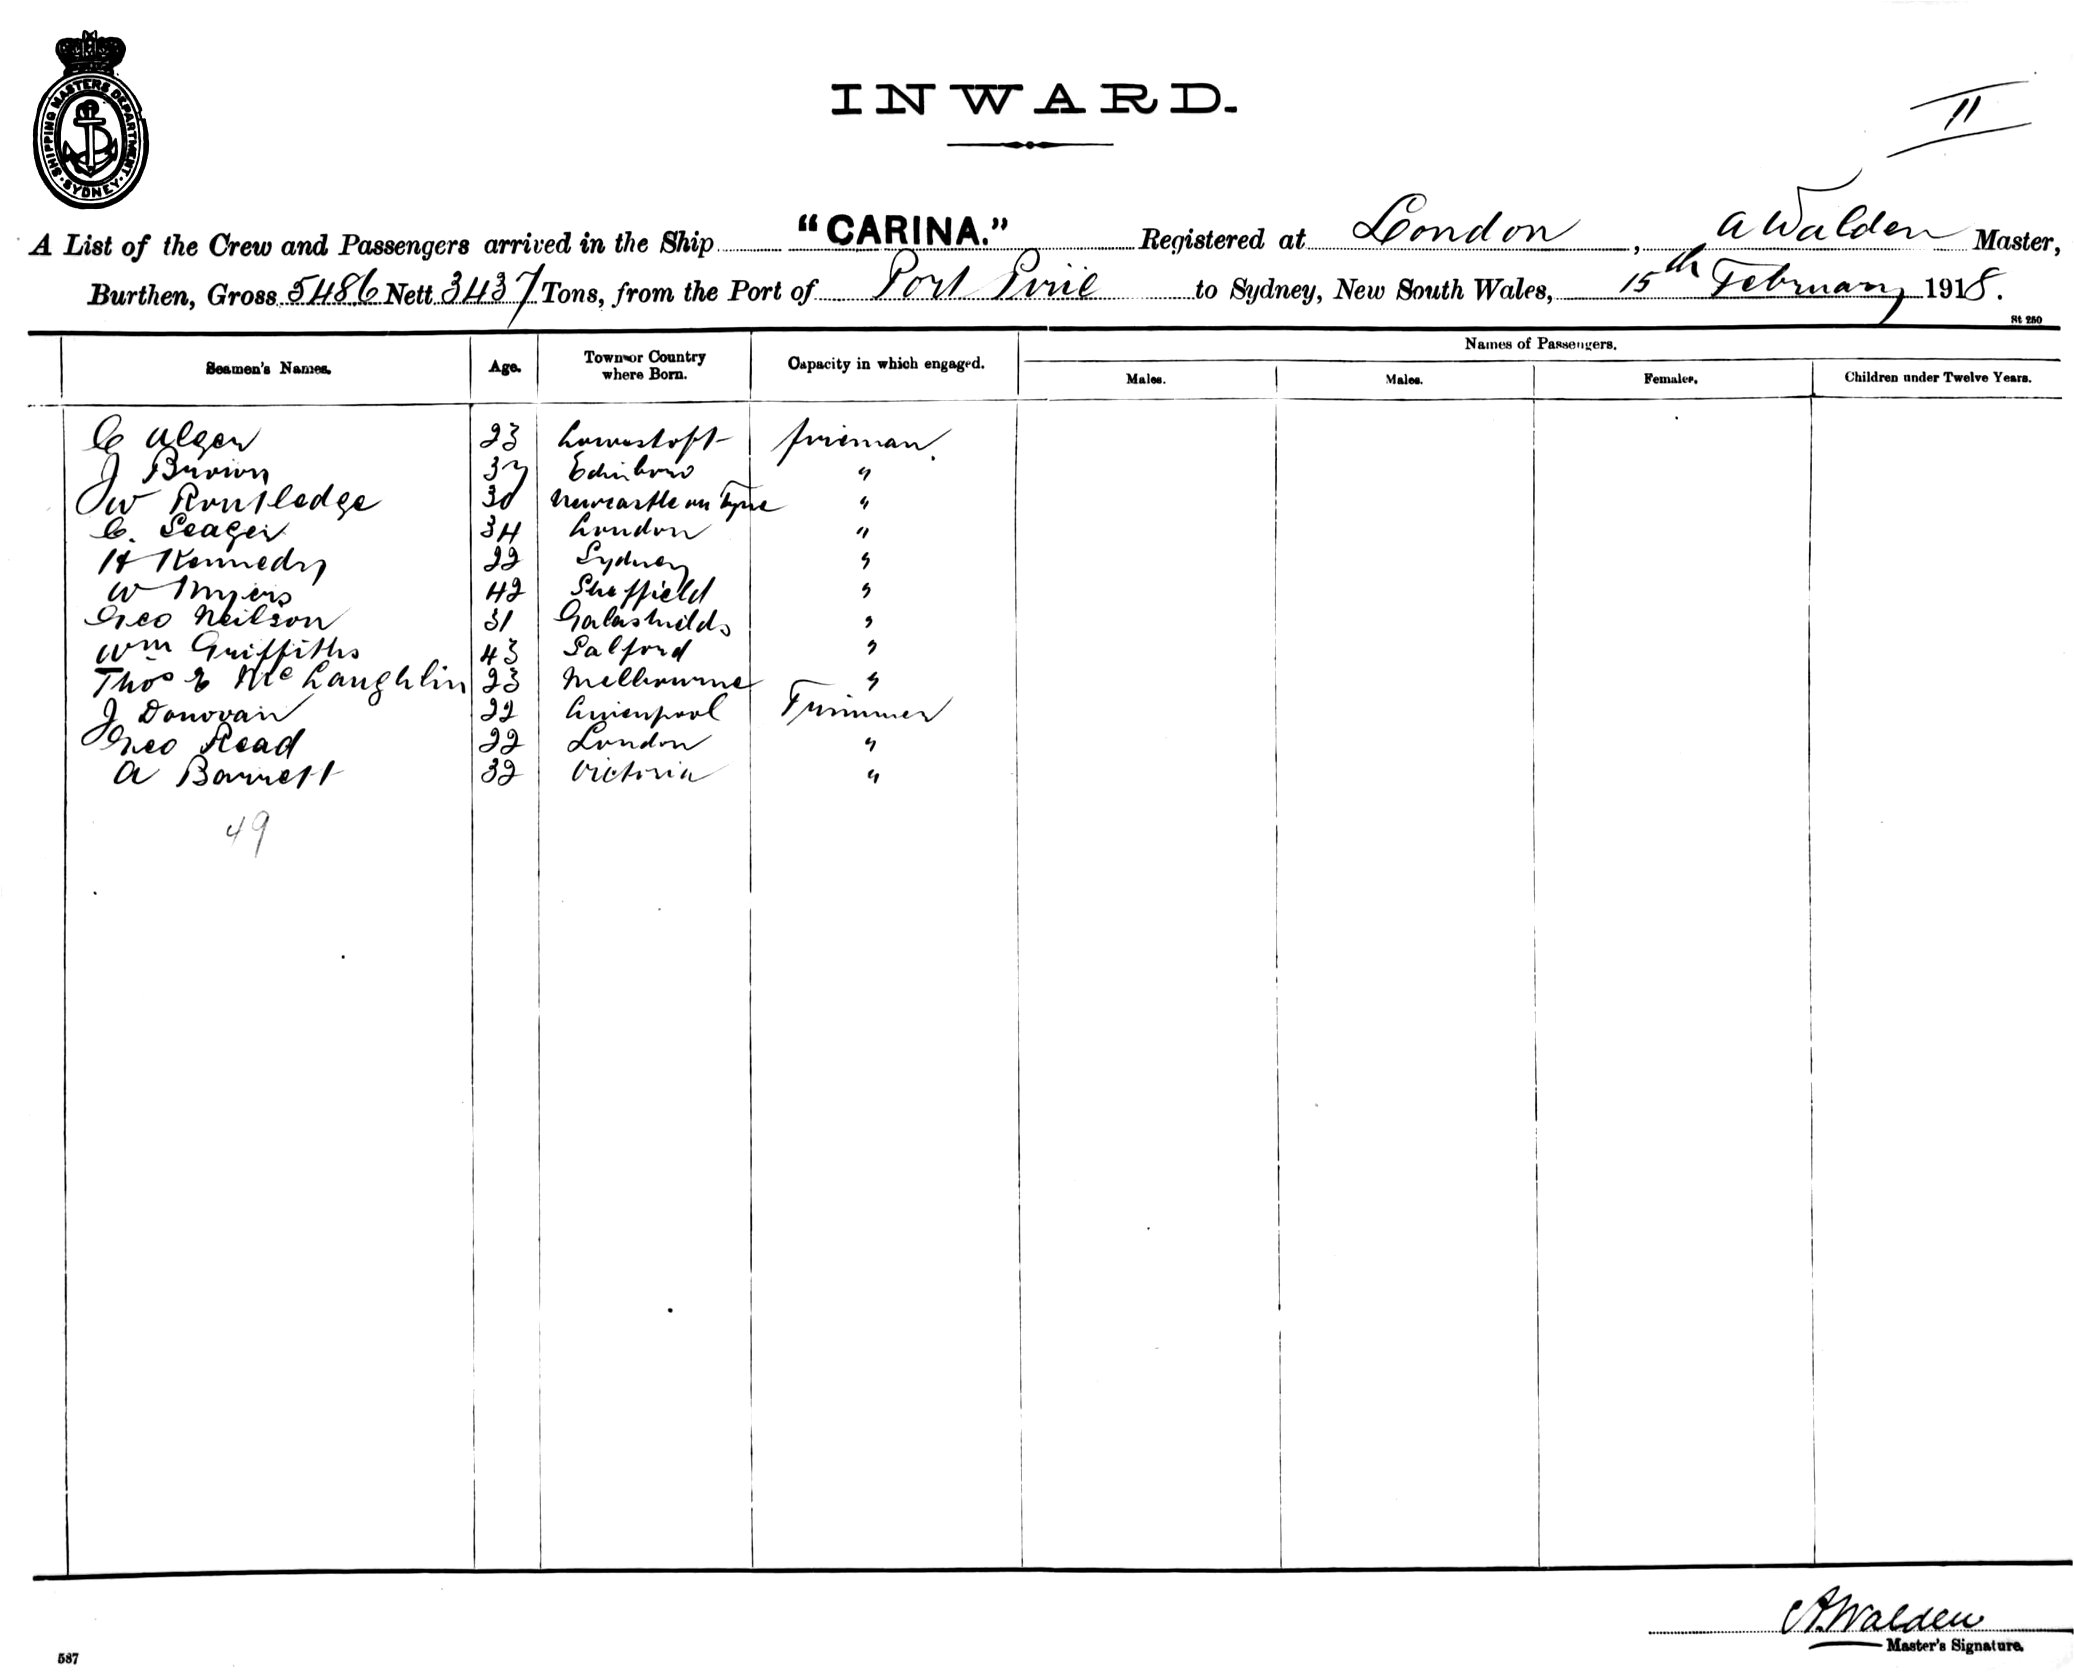 SHIPPING MASTERS DEPARTMENT · SYDNEY ·
INWARD.
II
A List of the Crew and Passengers arrived in the Ship "CARINA." Registered at London, A Walden Master,
Burthen, Gross 5486 Nett 3437 Tons, from the Port of Port Pirie to Sydney, New South Wales, 15th February 1918.
St 250
Seamen's Names. Age. Town or Country where Born. Capacity in which engaged. Names of Passengers.
Males. Males. Females. Children under Twelve Years.
C Alger 23 Lowestoft fireman.
J Brown 37 Edinboro "
W Routledge 30 Newcastle on Tyne "
C. Seager 34 London "
H Kennedy 22 Sydney "
W Myers 42 Sheffield "
Geo Neilson 31 Galashields "
Wm Griffiths 43 Salford "
Thos E McLaughlin 23 Melbourne "
J Donovan 22 Liverpool Trimmer
Geo Read 22 London "
A Barrett 32 Victoria "
49
A. Walden
Master's Signature.
587